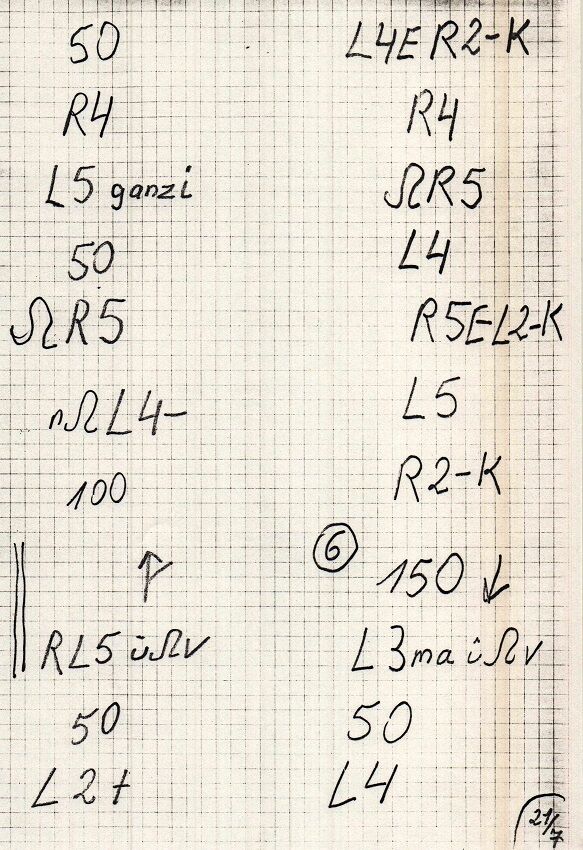 50
R4
L5 ganzi
50
ΩR5
nΩL4-
100
↑
RL5 üΩv
50
L2+
L4ER2-K
R4
ΩR5
L4
R5EL2-K
L5
R2-K
⑥ 150 ↓
L3ma üΩv
50
L4
21/7